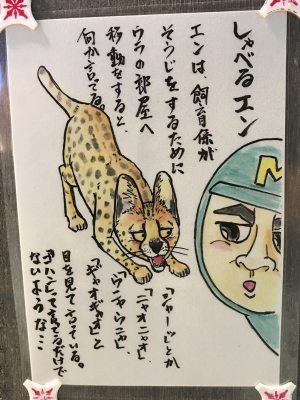 しゃべるエン
エンは、飼育係が
そうじをするために
ウラの部屋へ
移動をすると、
何か言ってる。
「シャーッ」とか
「ニャオニャオ」、
「ウニャウニャ」、
「ギャオギャオ」と
目を見て言っている。
ないような…
M